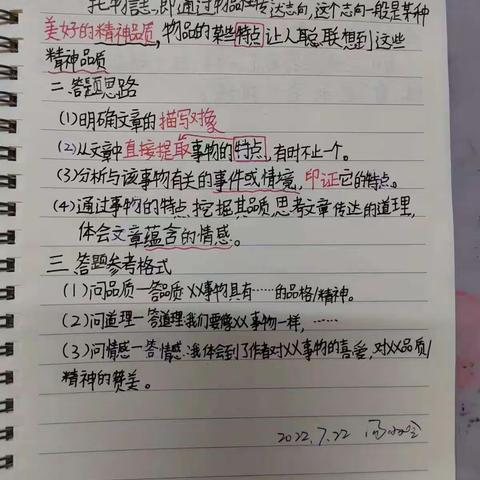 托物言志，即通过物品来传达志向，这个志向一般是某种
美好的精神品质，物品的某些特点让人联想到这些
精神品质
二、答题思路
(1)明确文章的描写对象
(2)从文章中直接提取事物的特点，有时不止一个。
(3)分析与该事物有关的事件或情境，印证它的特点。
(4)通过事物的特点，挖掘其品质，思考文章传达的道理，
体会文章蕴含的情感。
三、答题参考格式
(1)问品质—答品质 XX事物具有……的品格/精神。
(2)问道理—答道理 我们要像XX事物一样，……
(3)问情感—答情感：我体会到了作者对XX事物的喜爱，对XX品质/
精神的赞美。
2022.7.22